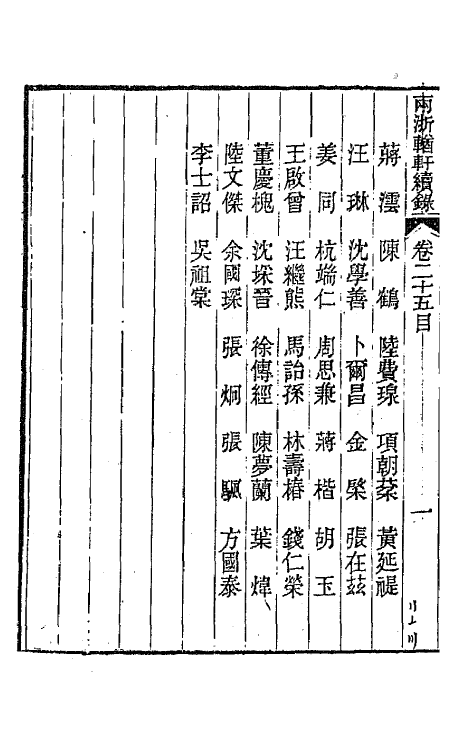 兩浙輶軒續錄 卷二十五目 一
蔣澐 陳鶴 陸費瑔 項朝棻 黃延禔
汪琳 沈學善 卜爾昌 金榮 張在茲
姜同 杭端仁 周思兼 蔣楷 胡玉
王啟曾 汪繼熊 馬詒孫 林壽椿 錢仁榮
董慶槐 沈垛晉 徐傳經 陳夢蘭 葉煒
陸文傑 余國琛 張炯 張駆 方國泰
李士詔 吳祖棠